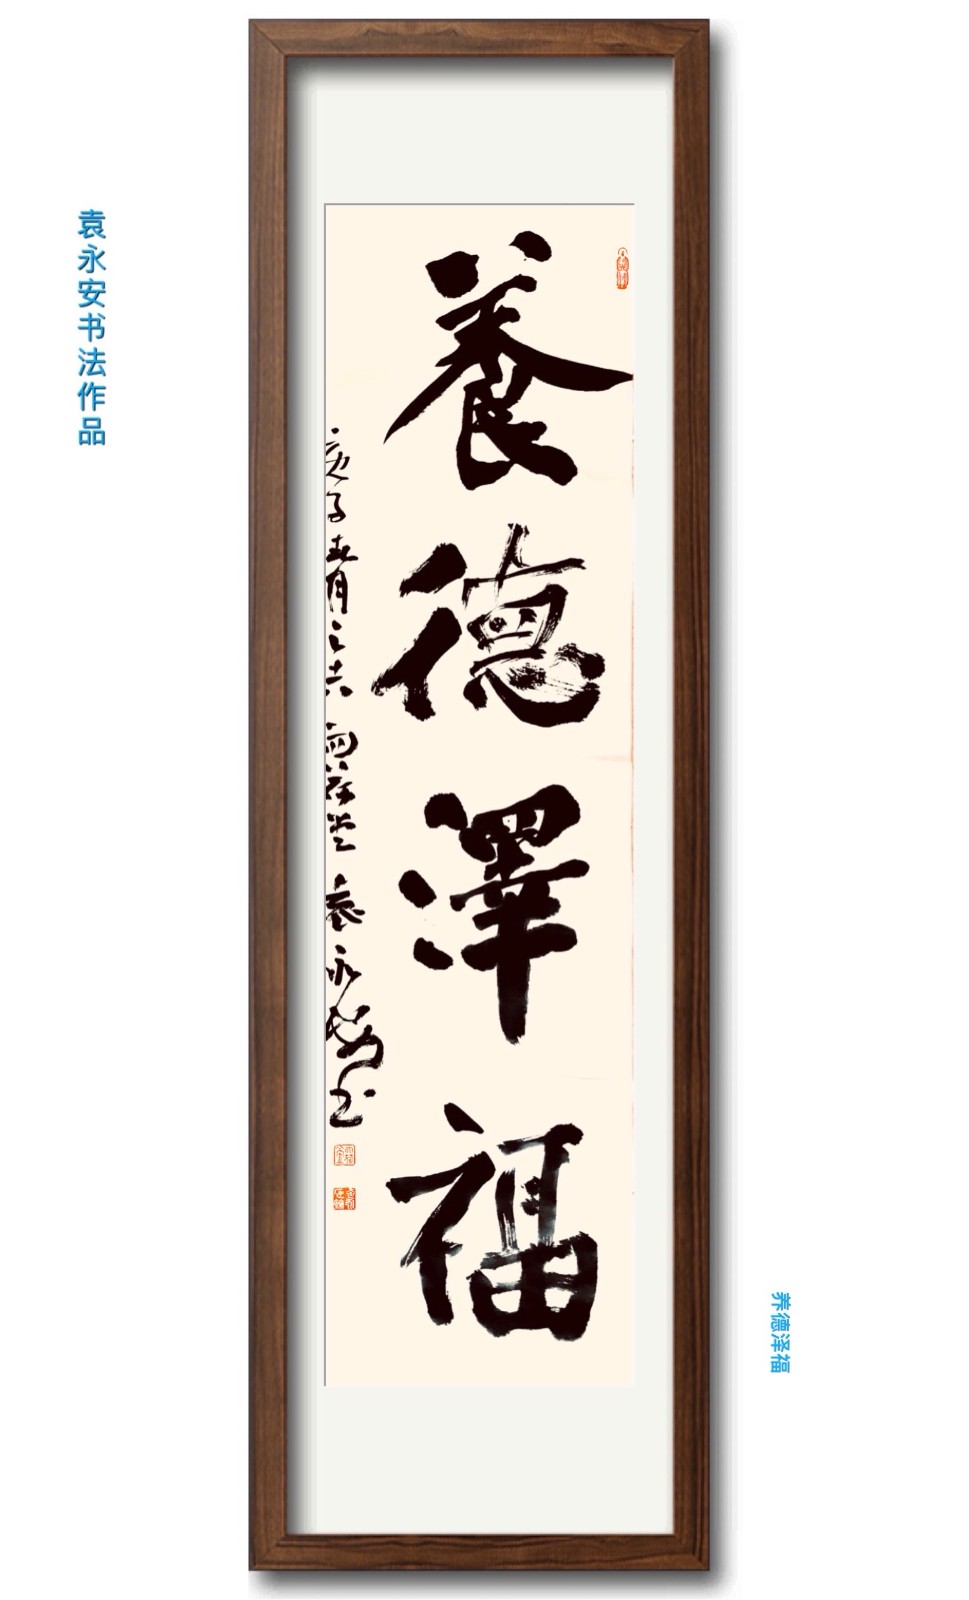 袁永安书法作品
養德澤福
庚子春月之吉
袁永安书
养德泽福